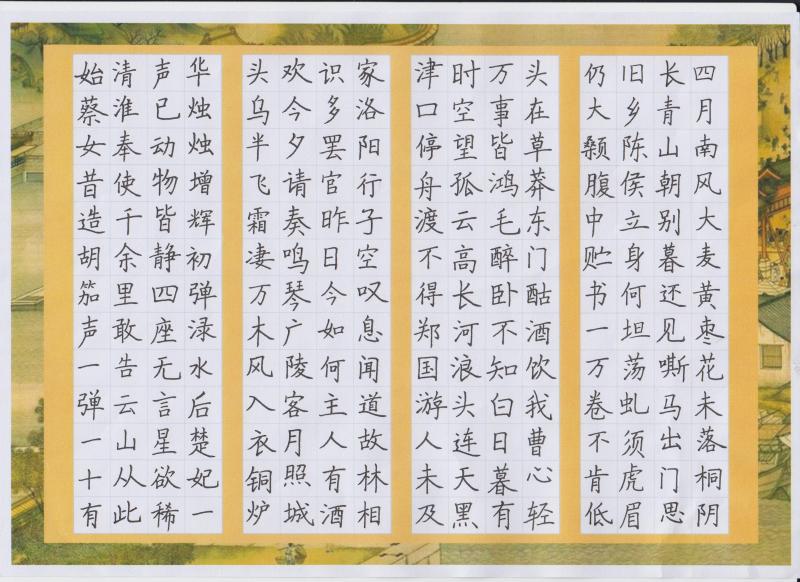 四月南风大麦黄枣花未落桐阴
长青山朝别暮还见嘶马出门思
旧乡陈侯立身何坦荡虬须虎眉
仍大颡腹中贮书一万卷不肯低
头在草莽东门酤酒饮我曹心轻
万事皆鸿毛醉卧不知白日暮有
时空望孤云高长河浪头连天黑
津口停舟渡不得郑国游人未及
家洛阳行子空叹息闻道故林相
识多罢官昨日今如何主人有酒
欢今夕请奏鸣琴广陵客月照城
头乌半飞霜凄万木风入衣铜炉
华烛烛增辉初弹渌水后楚妃一
声已动物皆静四座无言星欲稀
清淮奉使千余里敢告云山从此
始蔡女昔造胡笳声一弹一十有